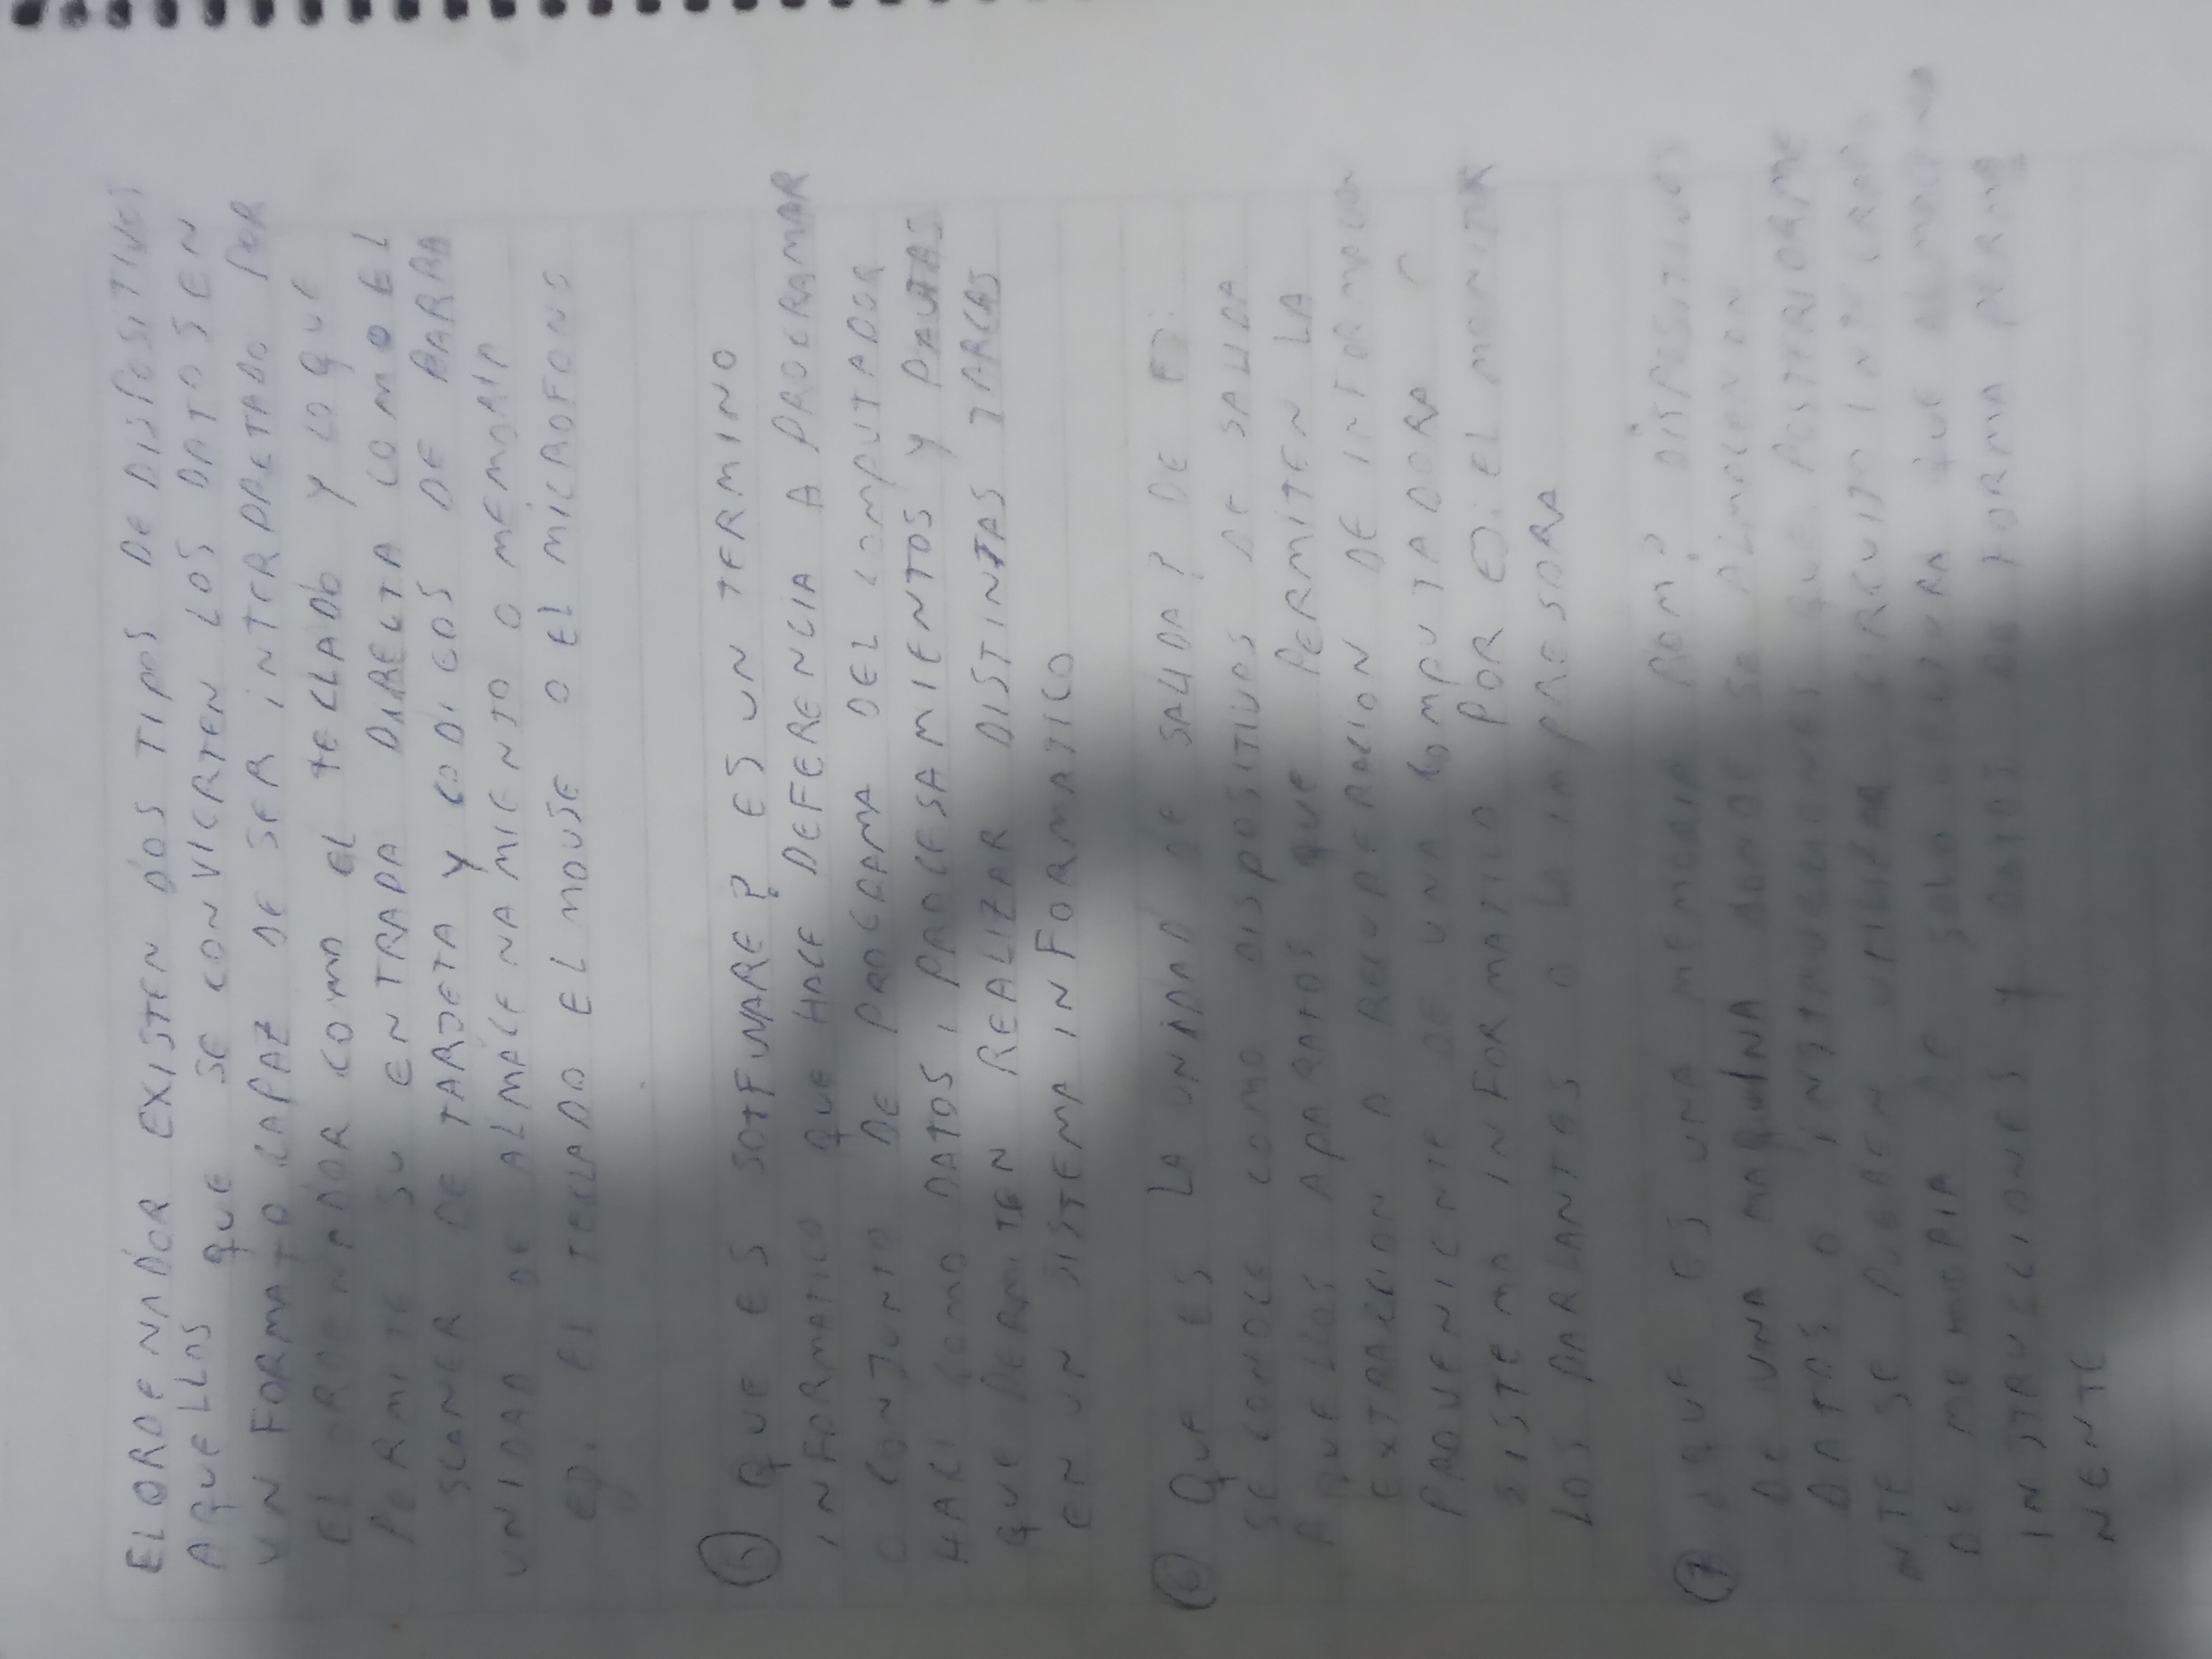 EL ORDENADOR EXISTEN DOS TIPOS DE DISPOSITIVOS
AQUELLOS QUE SE CONVIERTEN LOS DATOS EN
UN FORMATO CAPAZ DE SER INTERPRETADO POR
EL ORDENADOR COMO EL TECLADO Y LO QUE
PERMITE SU ENTRADA DIRECTA COMO EL
SCANER DE TARJETA Y CODIGOS DE BARRA
UNIDAD DE ALMACENAMIENTO O MEMORIA
EJ: EL TECLADO EL MOUSE O EL MICROFONO
5 QUE ES SOTFWARE? ES UN TERMINO
INFORMATICO QUE HACE REFERENCIA A PROGRAMAR
O CONJUNTO DE PROGRAMA DEL COMPUTADOR
COMO DATOS, PROCESAMIENTOS Y PAUTAS
QUE PERMITEN REALIZAR DISTINTAS TAREAS
EN UN SISTEMA INFORMATICO
6 QUE ES LA UNIDAD DE SALIDA? DE EJ:
SE CONOCE COMO DISPOSITIVOS DE SALIDA
AQUELLOS APARATOS QUE PERMITEN LA
EXTRACCION O RECUPERACION DE INFORMACION
PROVENIENTE DE UNA COMPUTADORA O
SISTEMA INFORMATICO POR EJ: EL MONITOR
LOS PARLANTES O LA IMPRESORA
7 QUE ES UNA MEMORIA ROM? DISPOSITIVOS
DE UNA MAQUINA DONDE SE ALMACENAN
DATOS O INSTRUCCIONES QUE POSTERIORME
NTE SE PUEDEN UTILIZAR CIRCUITO INTEGRADO
DE MEMORIA DE SOLO LECTURA QUE ALMACENA
INSTRUCCIONES Y DATOS DE FORMA PERMA
NENTE